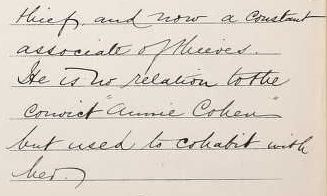 thief, and now a constant
associate of thieves.
He is no relation to the
convict "Annie Cohen"
but used to cohabit with
her.)